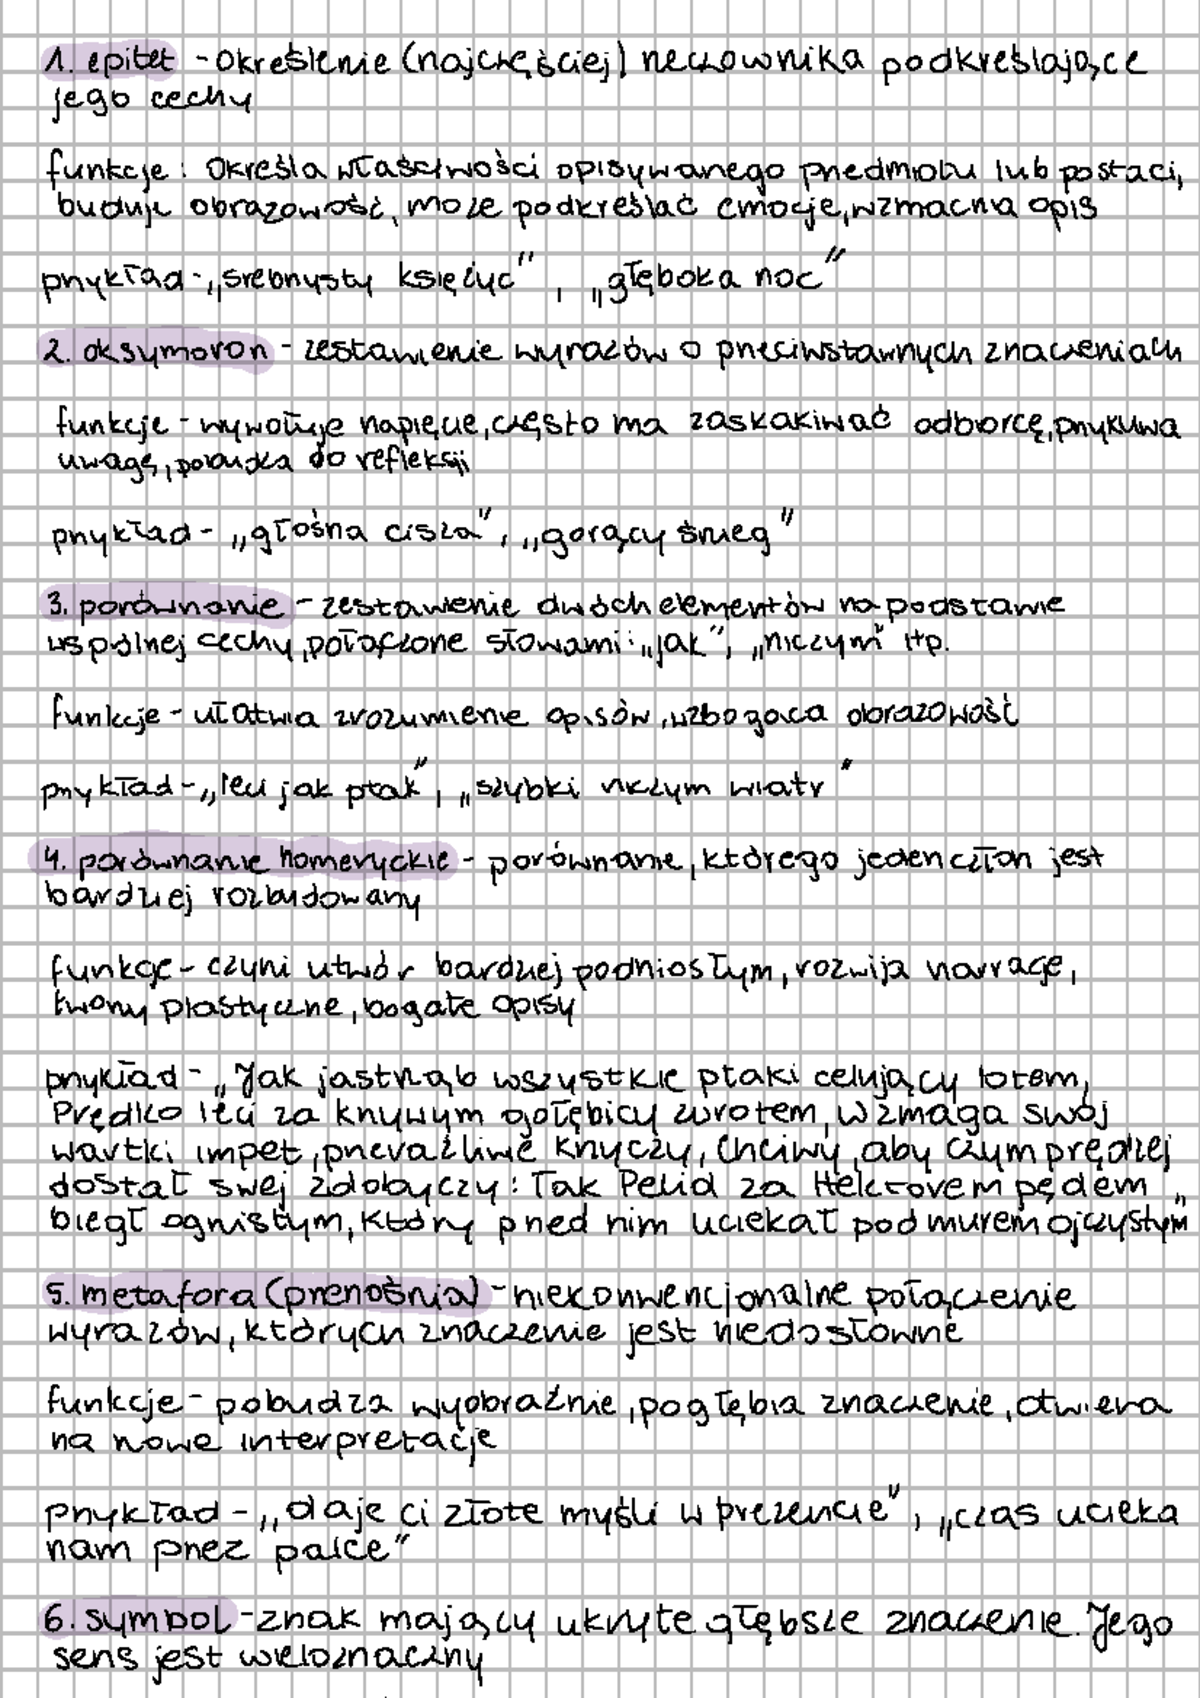 1. epitet - określenie (najczęściej) rzeczownika podkreślające
jego cechy
funkcje: określa właściwości opisywanego przedmiotu lub postaci,
buduje obrazowość, może podkreślać emocje, wzmacnia opis
przykład - „srebrzysty księżyc", „głęboka noc"
2. oksymoron - zestawienie wyrazów o przeciwstawnych znaczeniach
funkcje - wywołuje napięcie, często ma zaskakiwać odbiorcę, przykuwa
uwagę, pobudza do refleksji
przykład - „głośna cisza", „gorący śnieg"
3. porównanie - zestawienie dwóch elementów na podstawie
wspólnej cechy, połączone słowami: „jak", „niczym" itp.
funkcje - ułatwia zrozumienie opisów, wzbogaca obrazowość
przykład - „leci jak ptak", „szybki niczym wiatr"
4. porównanie homeryckie - porównanie, którego jeden człon jest
bardziej rozbudowany
funkcje - czyni utwór bardziej podniosłym, rozwija narrację,
tworzy plastyczne, bogate opisy
przykład - „Jak jastrząb wszystkie ptaki celujący lotem,
Prędko leci za krzywym gołębicy zwrotem, wzmaga swój
wartki impet, przeraźliwie krzyczy, chciwy, aby czym prędzej
dostał swej zdobyczy: Tak Pelid za Hektorem pędem
biegł ognistym, który przed nim uciekał pod murem ojczystym"
5. metafora (przenośnia) - niekonwencjonalne połączenie
wyrazów, których znaczenie jest niedosłowne
funkcje - pobudza wyobraźnie, pogłębia znaczenie, otwiera
na nowe interpretacje
przykład - „daję ci złote myśli w prezencie", „czas ucieka
nam przez palce"
6. symbol - znak mający ukryte głębsze znaczenie. Jego
sens jest wieloznaczny